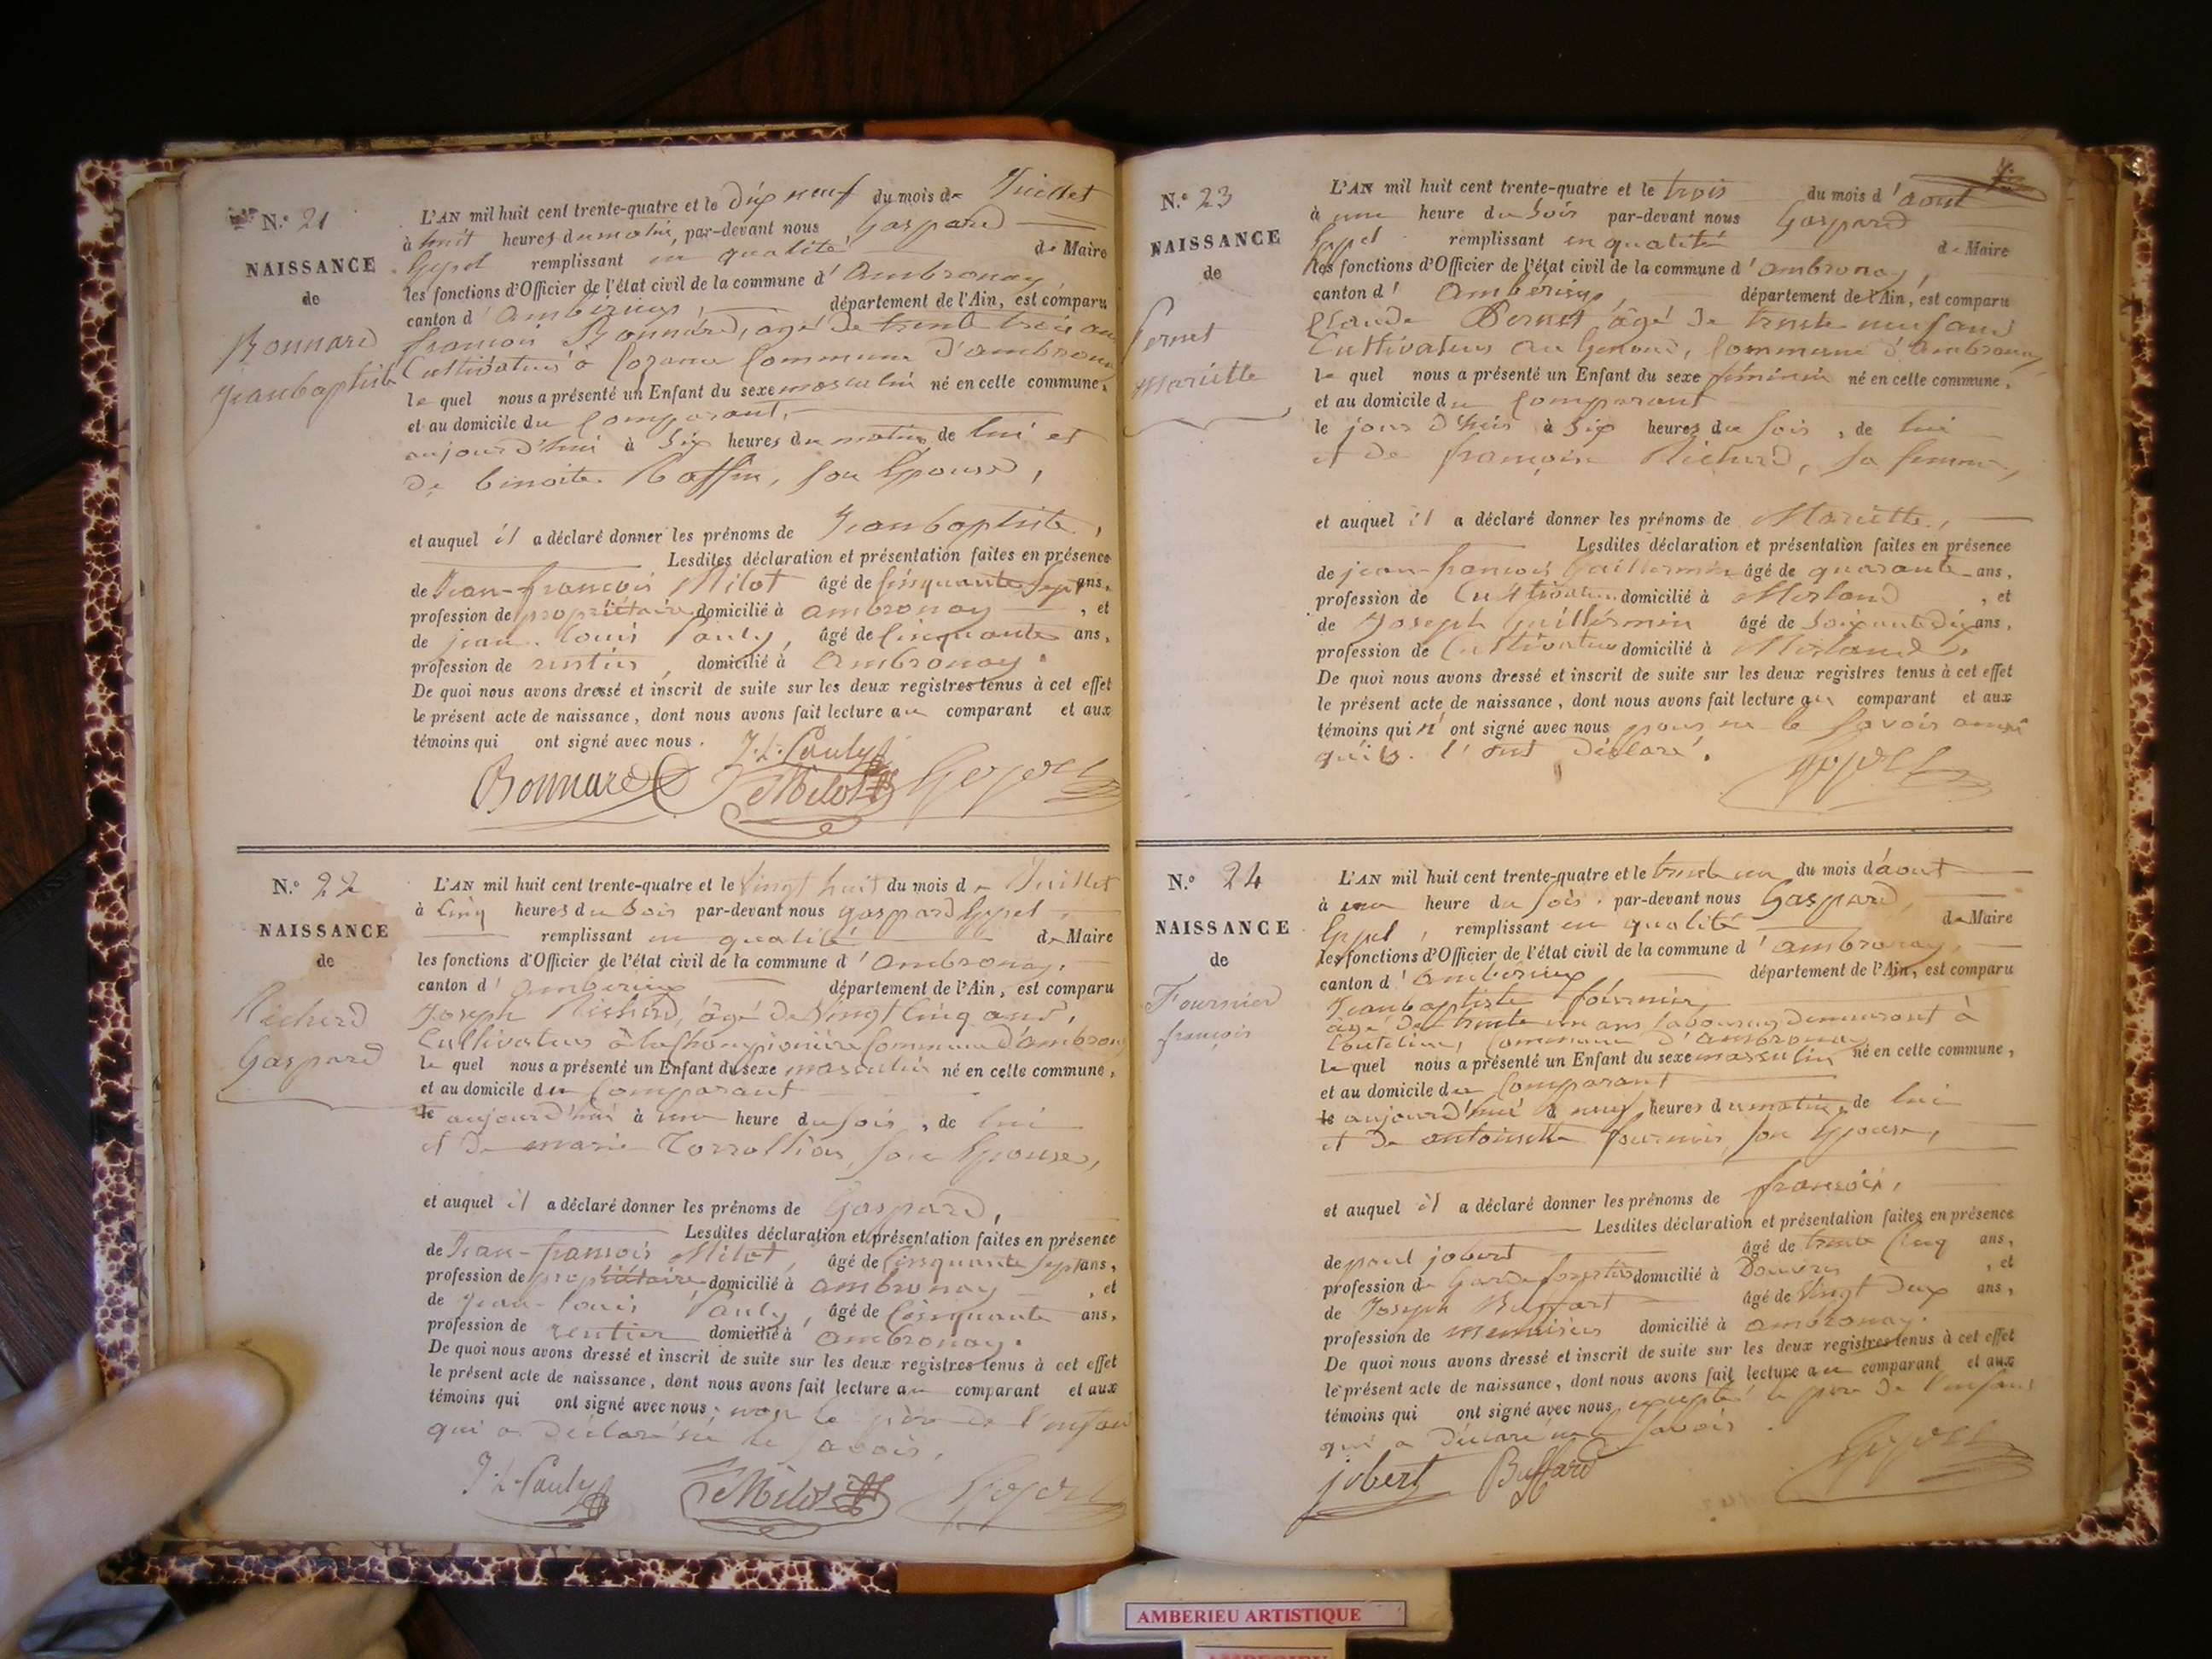 N.° 21
NAISSANCE
de
Bonnard
Jeanbaptiste
L'AN mil huit cent trente-quatre et le dix neuf du mois de Juillet
à huit heures du matin, par-devant nous Gaspard
remplissant en qualité de Maire
les fonctions d'Officier de l'état civil de la commune d'ambronay
canton d'amberieux, département de l'Ain, est comparu
françois Bonnard, agé de trente trois ans
Cultivateur à commune d'ambronay
le quel nous a présenté un Enfant du sexe masculin né en cette commune,
et au domicile du Comparant,
aujourd'hui à six heures du matin de lui et
de benoite son Epouse,
et auquel il a déclaré donner les prénoms de Jeanbaptiste,
Lesdites déclaration et présentation faites en présence
de Jean-françois Milot âgé de Cinquante Sept ans,
profession de propriétaire domicilié à ambronay, et
de jean louis Pauly, âgé de Cinquante ans,
profession de rentier, domicilié à ambronay.
De quoi nous avons dressé et inscrit de suite sur les deux registres tenus à cet effet
le présent acte de naissance, dont nous avons fait lecture au comparant et aux
témoins qui ont signé avec nous. J. L. Pauly
Bonnard Milot
N.° 22
NAISSANCE
de
Richerd
Gaspard
L'AN mil huit cent trente-quatre et le Vingt huit du mois de Juillet
à Cinq heures du Soir par-devant nous gaspard
remplissant en qualité de Maire
les fonctions d'Officier de l'état civil de la commune d'ambronay,
canton d'amberieux département de l'Ain, est comparu
Joseph Richerd, âgé de Vingt Cinq ans,
Cultivateur à la Commune d'ambronay
le quel nous a présenté un Enfant du sexe masculin né en cette commune,
et au domicile du Comparant
le aujourd'hui à une heure du soir, de lui
et de marie son Epouse,
et auquel il a déclaré donner les prénoms de Gaspard,
Lesdites déclaration et présentation faites en présence
de Jean-françois Milot, âgé de Cinquante Sept ans,
profession de propriétaire domicilié à ambronay, et
de Jean-louis Pauly, âgé de Cinquante ans,
profession de rentier domicilié à ambronay.
De quoi nous avons dressé et inscrit de suite sur les deux registres tenus à cet effet
le présent acte de naissance, dont nous avons fait lecture au comparant et aux
témoins qui ont signé avec nous; non le père de l'enfant
qui a déclaré ne le savoir,
J. L. Pauly Milot
N.° 23
NAISSANCE
de
Pernet
Mariette
L'AN mil huit cent trente-quatre et le trois du mois d'aout
à une heure du Soir par-devant nous Gaspard
remplissant en qualité de Maire
les fonctions d'Officier de l'état civil de la commune d'ambronay,
canton d'Amberieux, département de l'Ain, est comparu
Claude Pernet âgé de trente neuf ans
Cultivateur au Genoud, Commune d'ambronay
le quel nous a présenté un Enfant du sexe féminin né en cette commune,
et au domicile du Comparant
le jour d'huis à Six heures du Soir, de lui
et de françoise Richerd, sa femme,
et auquel il a déclaré donner les prénoms de Mariette,
Lesdites déclaration et présentation faites en présence
de jean-françois Guillermin âgé de quarante ans,
profession de Cultivateur domicilié à Merland, et
de Joseph Guillermin âgé de Soixante dix ans,
profession de Cultivateur domicilié à Merland,
De quoi nous avons dressé et inscrit de suite sur les deux registres tenus à cet effet
le présent acte de naissance, dont nous avons fait lecture au comparant et aux
témoins qui n'ont signé avec nous pour ne le Savoir ainsi
qu'ils l'ont déclaré.
N.° 24
NAISSANCE
de
Fournier
françois
L'AN mil huit cent trente-quatre et le trente un du mois d'aout
à une heure du soir par-devant nous Gaspard
remplissant en qualité de Maire
les fonctions d'Officier de l'état civil de la commune d'ambronay,
canton d'amberieux, département de l'Ain, est comparu
Jeanbaptiste fournier,
âgé de trente un ans laboureur demeurant à
Coutelieu, commune d'ambronay
Le quel nous a présenté un Enfant du sexe masculin né en cette commune,
et au domicile du Comparant
le aujourd'hui à neuf heures du matin, de lui
et de antoinette fournier, son Epouse,
et auquel il a déclaré donner les prénoms de françois,
Lesdites déclaration et présentation faites en présence
de paul jobert âgé de trente Cinq ans,
profession de Garde forestier domicilié à Douvres, et
de Joseph Buffart âgé de Vingt Deux ans,
profession de menuisier domicilié à ambronay.
De quoi nous avons dressé et inscrit de suite sur les deux registres tenus à cet effet
le présent acte de naissance, dont nous avons fait lecture au comparant et aux
témoins qui ont signé avec nous, excepté le père de l'enfant
qui a déclaré ne le savoir.
jobert Buffard
AMBERIEU ARTISTIQUE